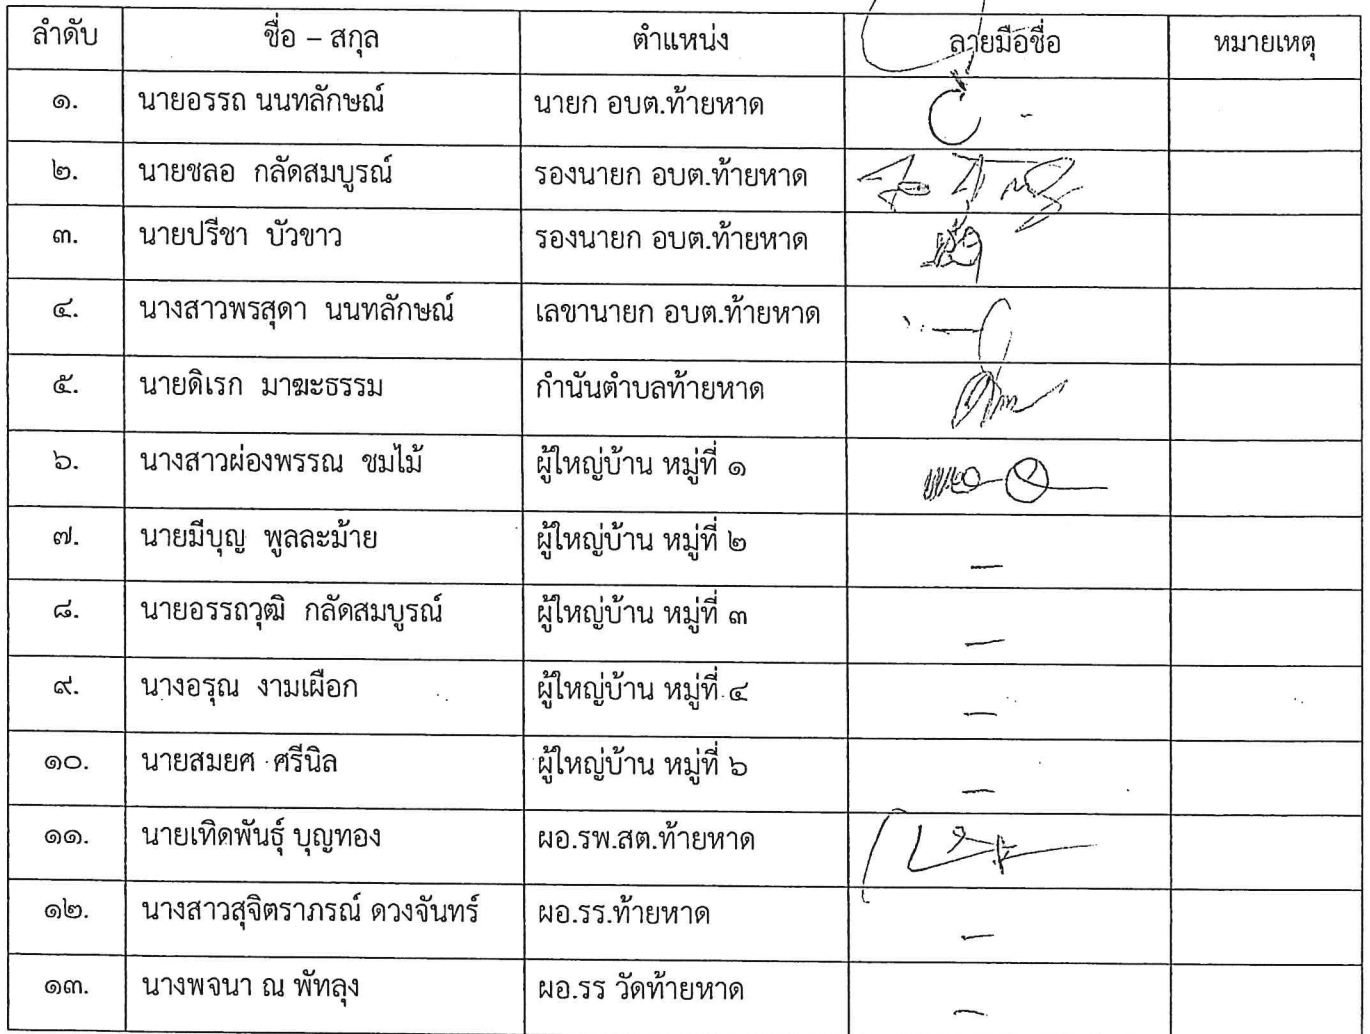 ลำดับ ชื่อ – สกุล ตำแหน่ง ลายมือชื่อ หมายเหตุ
๑. นายอรรถ นนทลักษณ์ นายก อบต.ท้ายหาด
๒. นายชลอ กลัดสมบูรณ์ รองนายก อบต.ท้ายหาด
๓. นายปรีชา บัวขาว รองนายก อบต.ท้ายหาด
๔. นางสาวพรสุดา นนทลักษณ์ เลขานายก อบต.ท้ายหาด
๕. นายดิเรก มาฆะธรรม กำนันตำบลท้ายหาด
๖. นางสาวผ่องพรรณ ชมไม้ ผู้ใหญ่บ้าน หมู่ที่ ๑
๗. นายมีบุญ พูลละม้าย ผู้ใหญ่บ้าน หมู่ที่ ๒ –
๘. นายอรรถวุฒิ กลัดสมบูรณ์ ผู้ใหญ่บ้าน หมู่ที่ ๓ –
๙. นางอรุณ งามเผือก ผู้ใหญ่บ้าน หมู่ที่ ๔ –
๑๐. นายสมยศ ศรีนิล ผู้ใหญ่บ้าน หมู่ที่ ๖ –
๑๑. นายเทิดพันธุ์ บุญทอง ผอ.รพ.สต.ท้ายหาด
๑๒. นางสาวสุจิตราภรณ์ ดวงจันทร์ ผอ.รร.ท้ายหาด –
๑๓. นางพจนา ณ พัทลุง ผอ.รร วัดท้ายหาด –